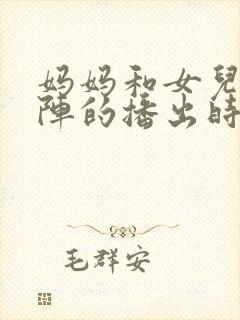 妈妈和女兒
陣的播出時
毛群安